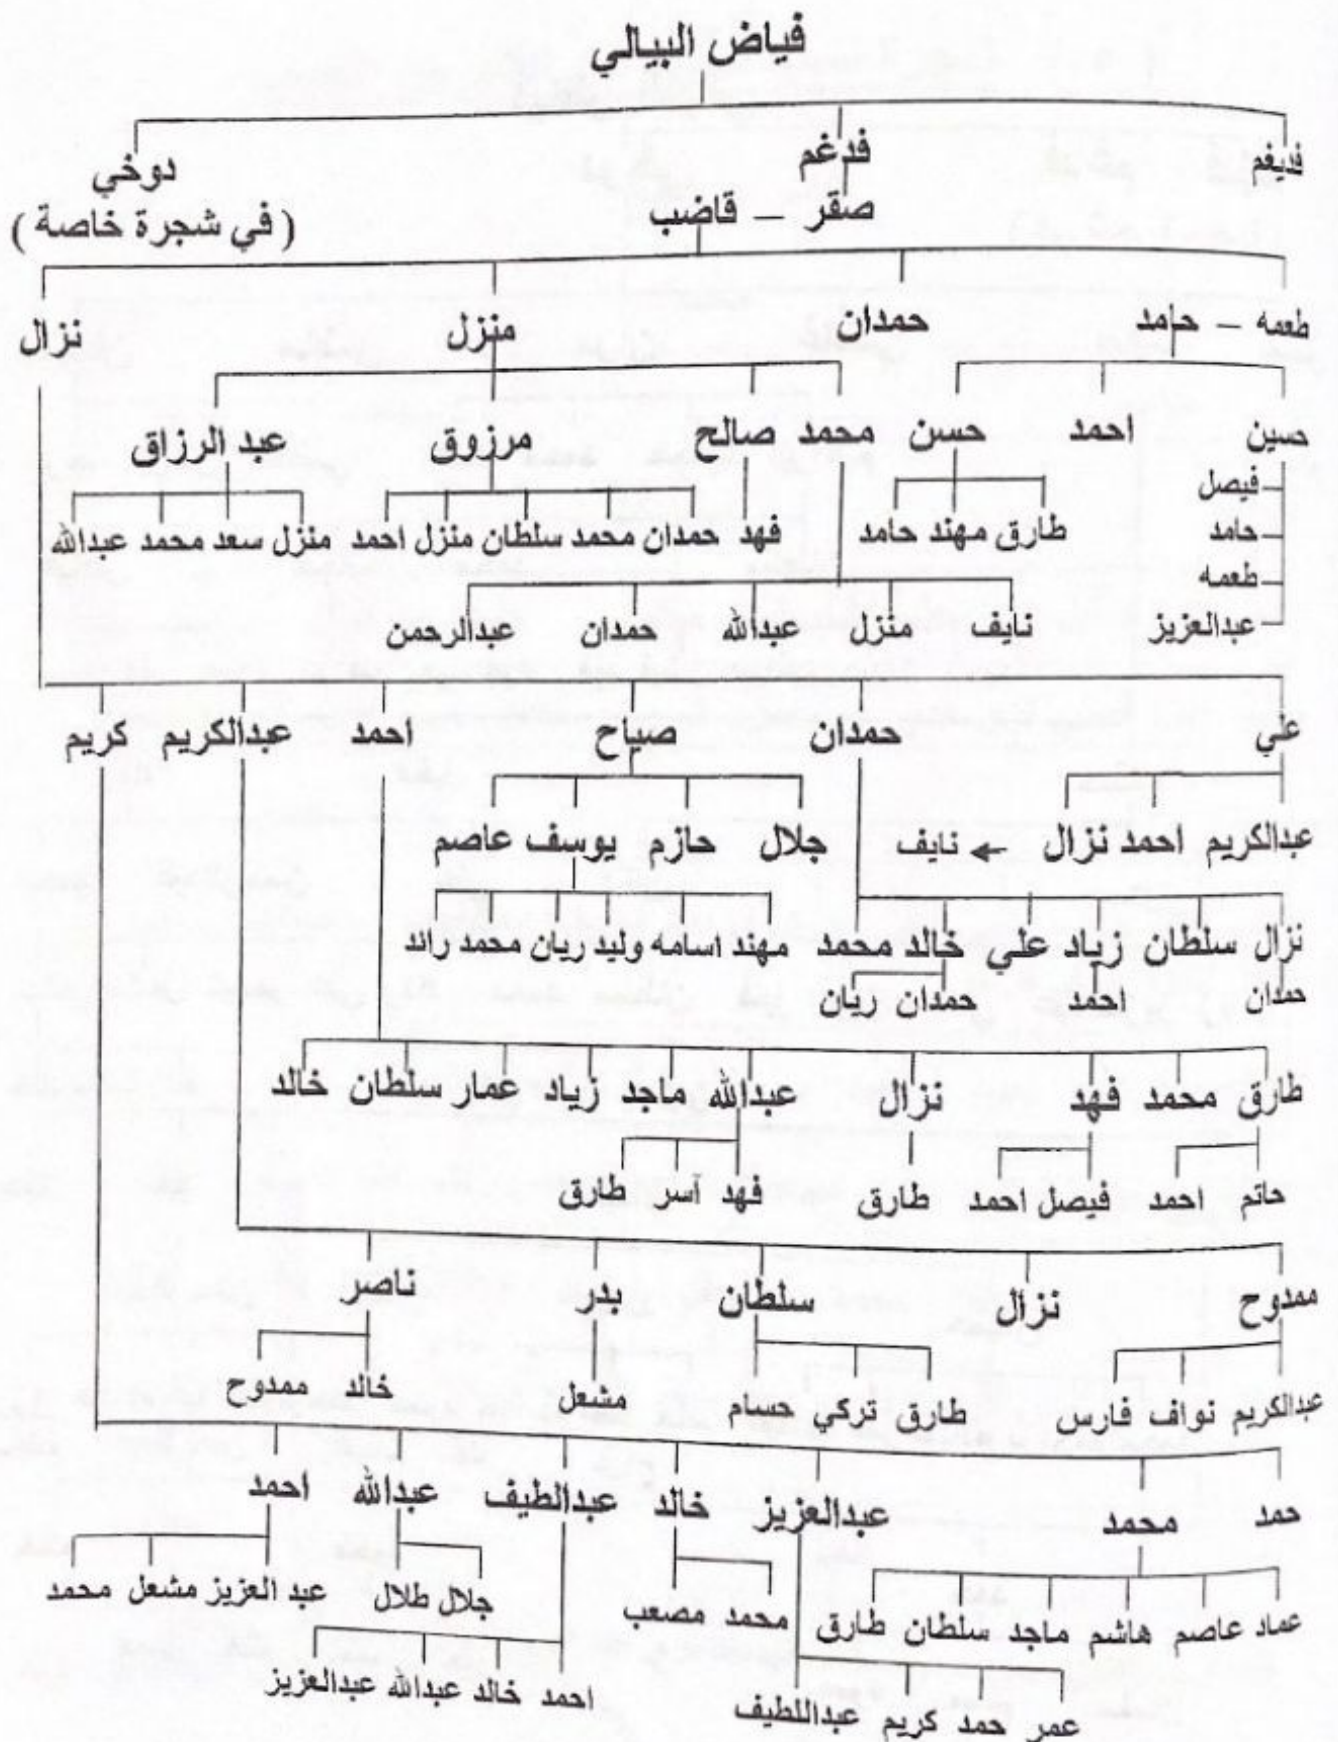 فياض البيالي
فديغم فدغم دوخي
صقر – قاضب ( في شجرة خاصة )
طعمه – حامد حمدان منزل نزال
حسين احمد حسن محمد صالح مرزوق عبد الرزاق
فيصل
حامد طارق مهند حامد فهد حمدان محمد سلطان منزل احمد منزل سعد محمد عبدالله
طعمه
عبدالعزيز نايف منزل عبدالله حمدان عبدالرحمن
علي حمدان صياح احمد عبدالكريم كريم
عبدالكريم احمد نزال ← نايف جلال حازم يوسف عاصم
نزال سلطان زياد علي خالد محمد مهند اسامه وليد ريان محمد رائد
حمدان احمد حمدان ريان
طارق محمد فهد نزال عبدالله ماجد زياد عمار سلطان خالد
حاتم احمد فيصل احمد طارق فهد آسر طارق
ممدوح نزال سلطان بدر ناصر
عبدالكريم نواف فارس طارق تركي حسام مشعل خالد ممدوح
حمد محمد عبدالعزيز خالد عبدالطيف عبدالله احمد
عماد عاصم هاشم ماجد سلطان طارق محمد مصعب جلال طلال عبد العزيز مشعل محمد
عمر حمد كريم عبداللطيف احمد خالد عبدالله عبدالعزيز